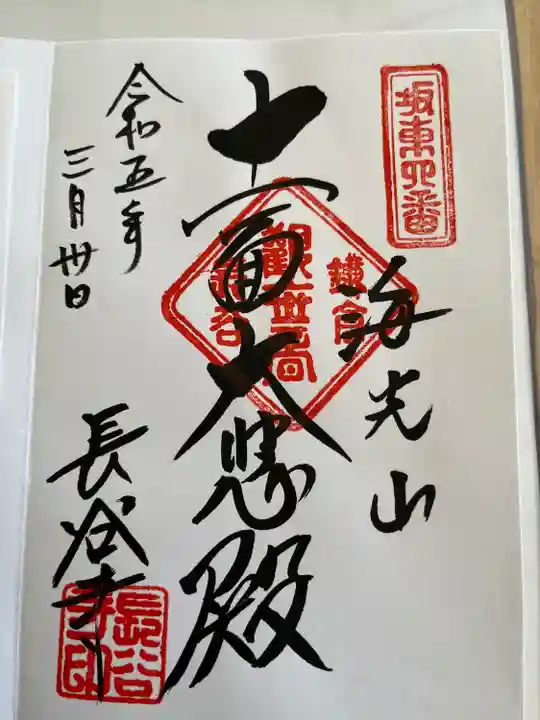 坂東四番
海光山
十一面大悲殿
鎌倉
観世音
長谷
令和五年
三月卅日
長谷寺
長谷寺印